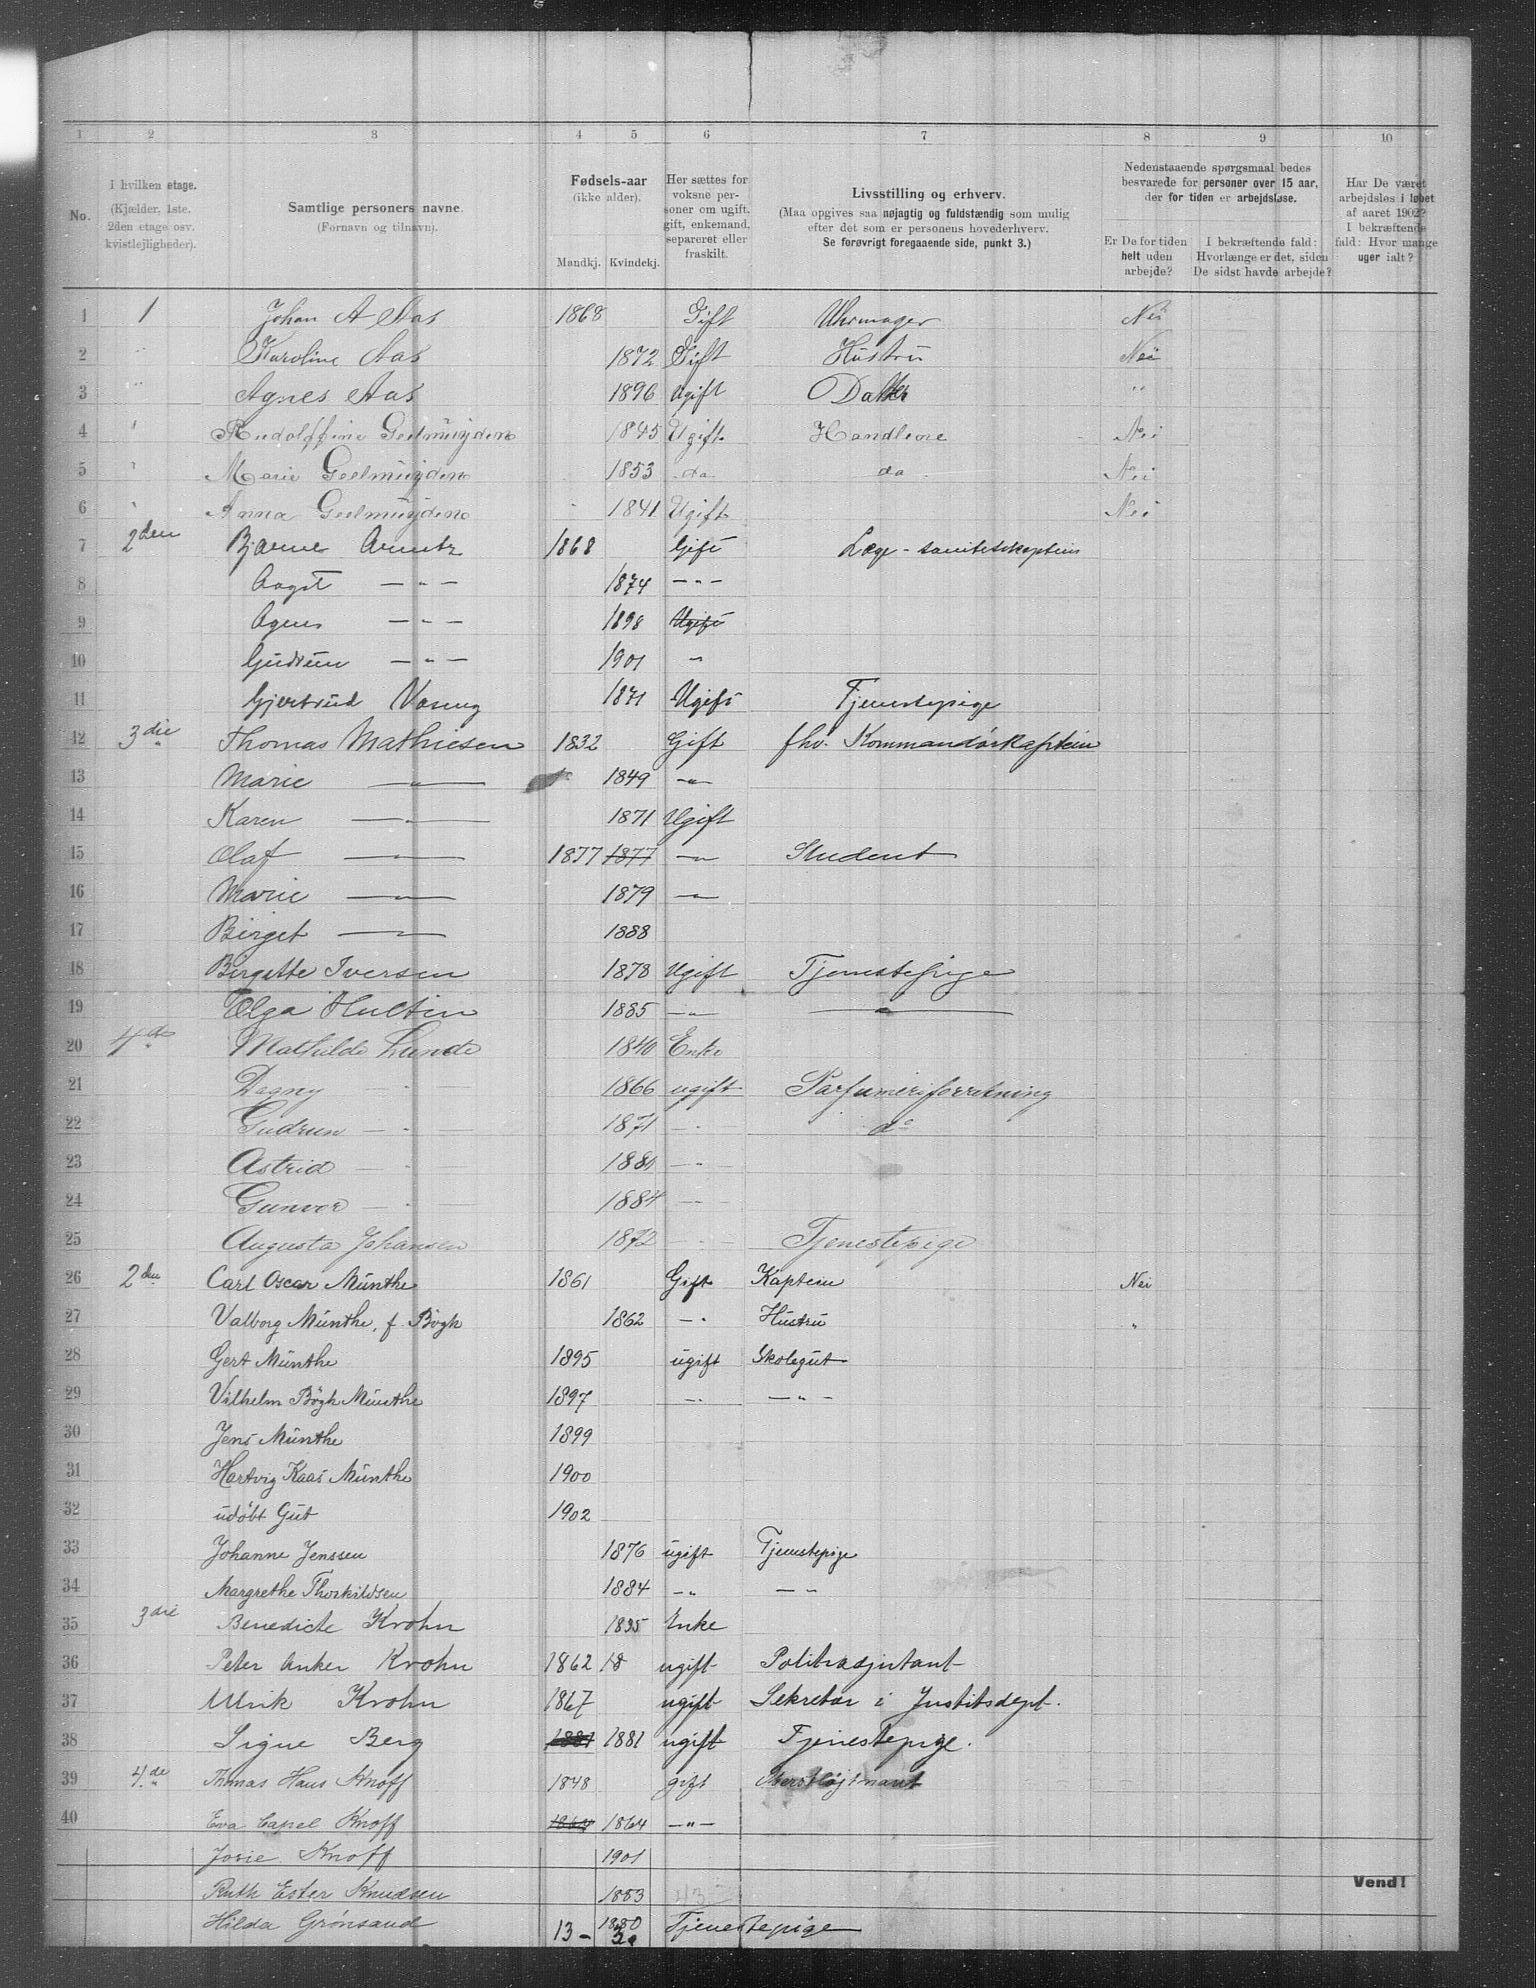 1 2 3 4 5 6 7 8 9 10
No.
I hvilken etage. (Kjælder, 1ste. 2den etage osv. kvistlejligheder).
Samtlige personers navne. (Fornavn og tilnavn).
Fødsels-aar (ikke alder). Mandkj. Kvindekj.
Her sættes for voksne personer om ugift, gift, enkemand, separeret eller fraskilt.
Livsstilling og erhverv. (Maa opgives saa nøjagtig og fuldstændig som mulig efter det som er personens hovederhverv. Se forøvrigt foregaaende side, punkt 3.)
Nedenstaaende spørgsmaal bedes besvarede for personer over 15 aar, der for tiden er arbejdsløse.
Er De for tiden helt uden arbejde?
I bekræftende fald: Hvorlænge er det, siden De sidst havde arbejde?
Har De været arbejdsløs i løbet af aaret 1902? I bekræftende fald: Hvor mange uger ialt?
1 1 Johan A Aas 1868 Gift Uhrmager Nei
2 " Karoline Aas 1872 Gift Hustru Nei
3 " Agnes Aas 1896 Ugift Datter "
4 " Rudolffine Geelmuyden 1845 Ugift Handlene Nei
5 " Marie Geelmuyden 1853 do do Nei
6 " Anna Geelmuyden 1841 Ugift Nei
7 2den Bjarne Arentz 1868 Gift Læge - sanitetskaptein
8 Aagot — " — 1874 — " —
9 Agnes — " — 1898 Ugift
10 Gudrun — " — 1901 "
11 Gjertrud Vaseng 1871 Ugift Tjenestepige
12 3die Thomas Mathiesen 1832 Gift fhv. Kommandørkaptein
13 Marie — " — 1849 — " —
14 Karen — " — 1871 Ugift
15 Olaf — " — 1877 1877 — " — Student
16 Marie — " — 1879 — " —
17 Birget — " — 1888
18 Birgitte Iversen 1878 Ugift Tjenestepige
19 Olga Hultin 1885 — " — — " —
20 4de Mathilde Lunde 1840 Enke
21 Dagny — " — 1866 ugift Parfumeriforretning
22 Gudrun — " — 1871 — " do
23 Astrid — " — 1881 — " —
24 Gunvor — " — 1884 — " —
25 Augusta Johansen 1872 — " — Tjenestepige
26 2den Carl Oscar Munthe 1861 Gift Kaptein Nei
27 Valborg Munthe, f. Bøgh 1862 — " Hustru "
28 Gert Munthe 1895 ugift Skolegut
29 Vilhelm Bøgh Munthe 1897 — " — — " —
30 Jens Munthe 1899
31 Hartvig Kaas Munthe 1900
32 udøbt Gut 1902
33 Johanne Jenssen 1876 ugift Tjenstepige
34 Margrethe Thorkildsen 1884 — " — "
35 3die Benedicte Krohn 1835 Enke
36 Peter Anker Krohn 1862 18 ugift Politiadjutant
37 Ulrik Krohn 1867 ugift Sekretær i Justitsdept.
38 Signe Berg 1881 1881 ugift Tjenestepige.
39 4de Thomas Hans Knoff 1848 gift Oberstløjtnant
40 Eva Capel Knoff 1864 1864 — " —
Josie Knoff 1901
Vend!
Ruth Ester Knudsen 1883 43
Hilda Grönsand 1880 Tjenestepige
13 - 30